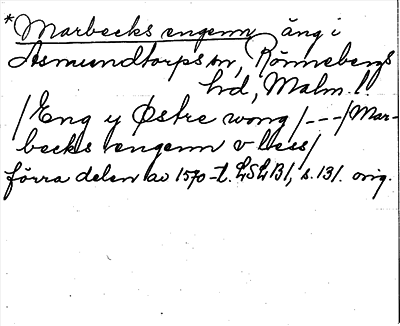 *Marbecks engenn äng i
Asmundtorps sn, Rönnebergs
hd, Malm. l.
/Eng y Østre wong/---/Mar-
becks engenn v lies/
förra delen av 1570-t. LSLB1, s. 131. orig.